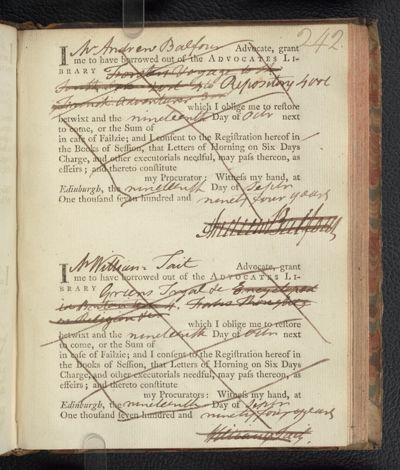 242.
I Mr Andrew Balfour Advocate, grant
me to have borrowed out of the ADVOCATES LI-
BRARY Forsters Voyage
Repository 4 vol
which I oblige me to restore
betwixt and the nineteenth Day of Octr next
to come, or the Sum of
in case of Failzie; and I consent to the Registration hereof in
the Books of Session, that Letters of Horning on Six Days
Charge, and other executorials needful, may pass thereon, as
effeirs; and thereto constitute
my Procurator: Witness my hand, at
Edinburgh, the nineteenth Day of Septr
One thousand seven hundred and ninety four years
Andrew Balfour
I Mr William Tait Advocate, grant
me to have borrowed out of the ADVOCATES LI-
BRARY
which I oblige me to restore
betwixt and the nineteenth Day of Octr next
to come, or the Sum of
in case of Failzie; and I consent to the Registration hereof in
the Books of Session, that Letters of Horning on Six Days
Charge, and other executorials needful, may pass thereon, as
effeirs; and thereto constitute
my Procurators: Witness my hand, at
Edinburgh, the nineteenth Day of Septr
One thousand seven hundred and ninety four years
William Tait